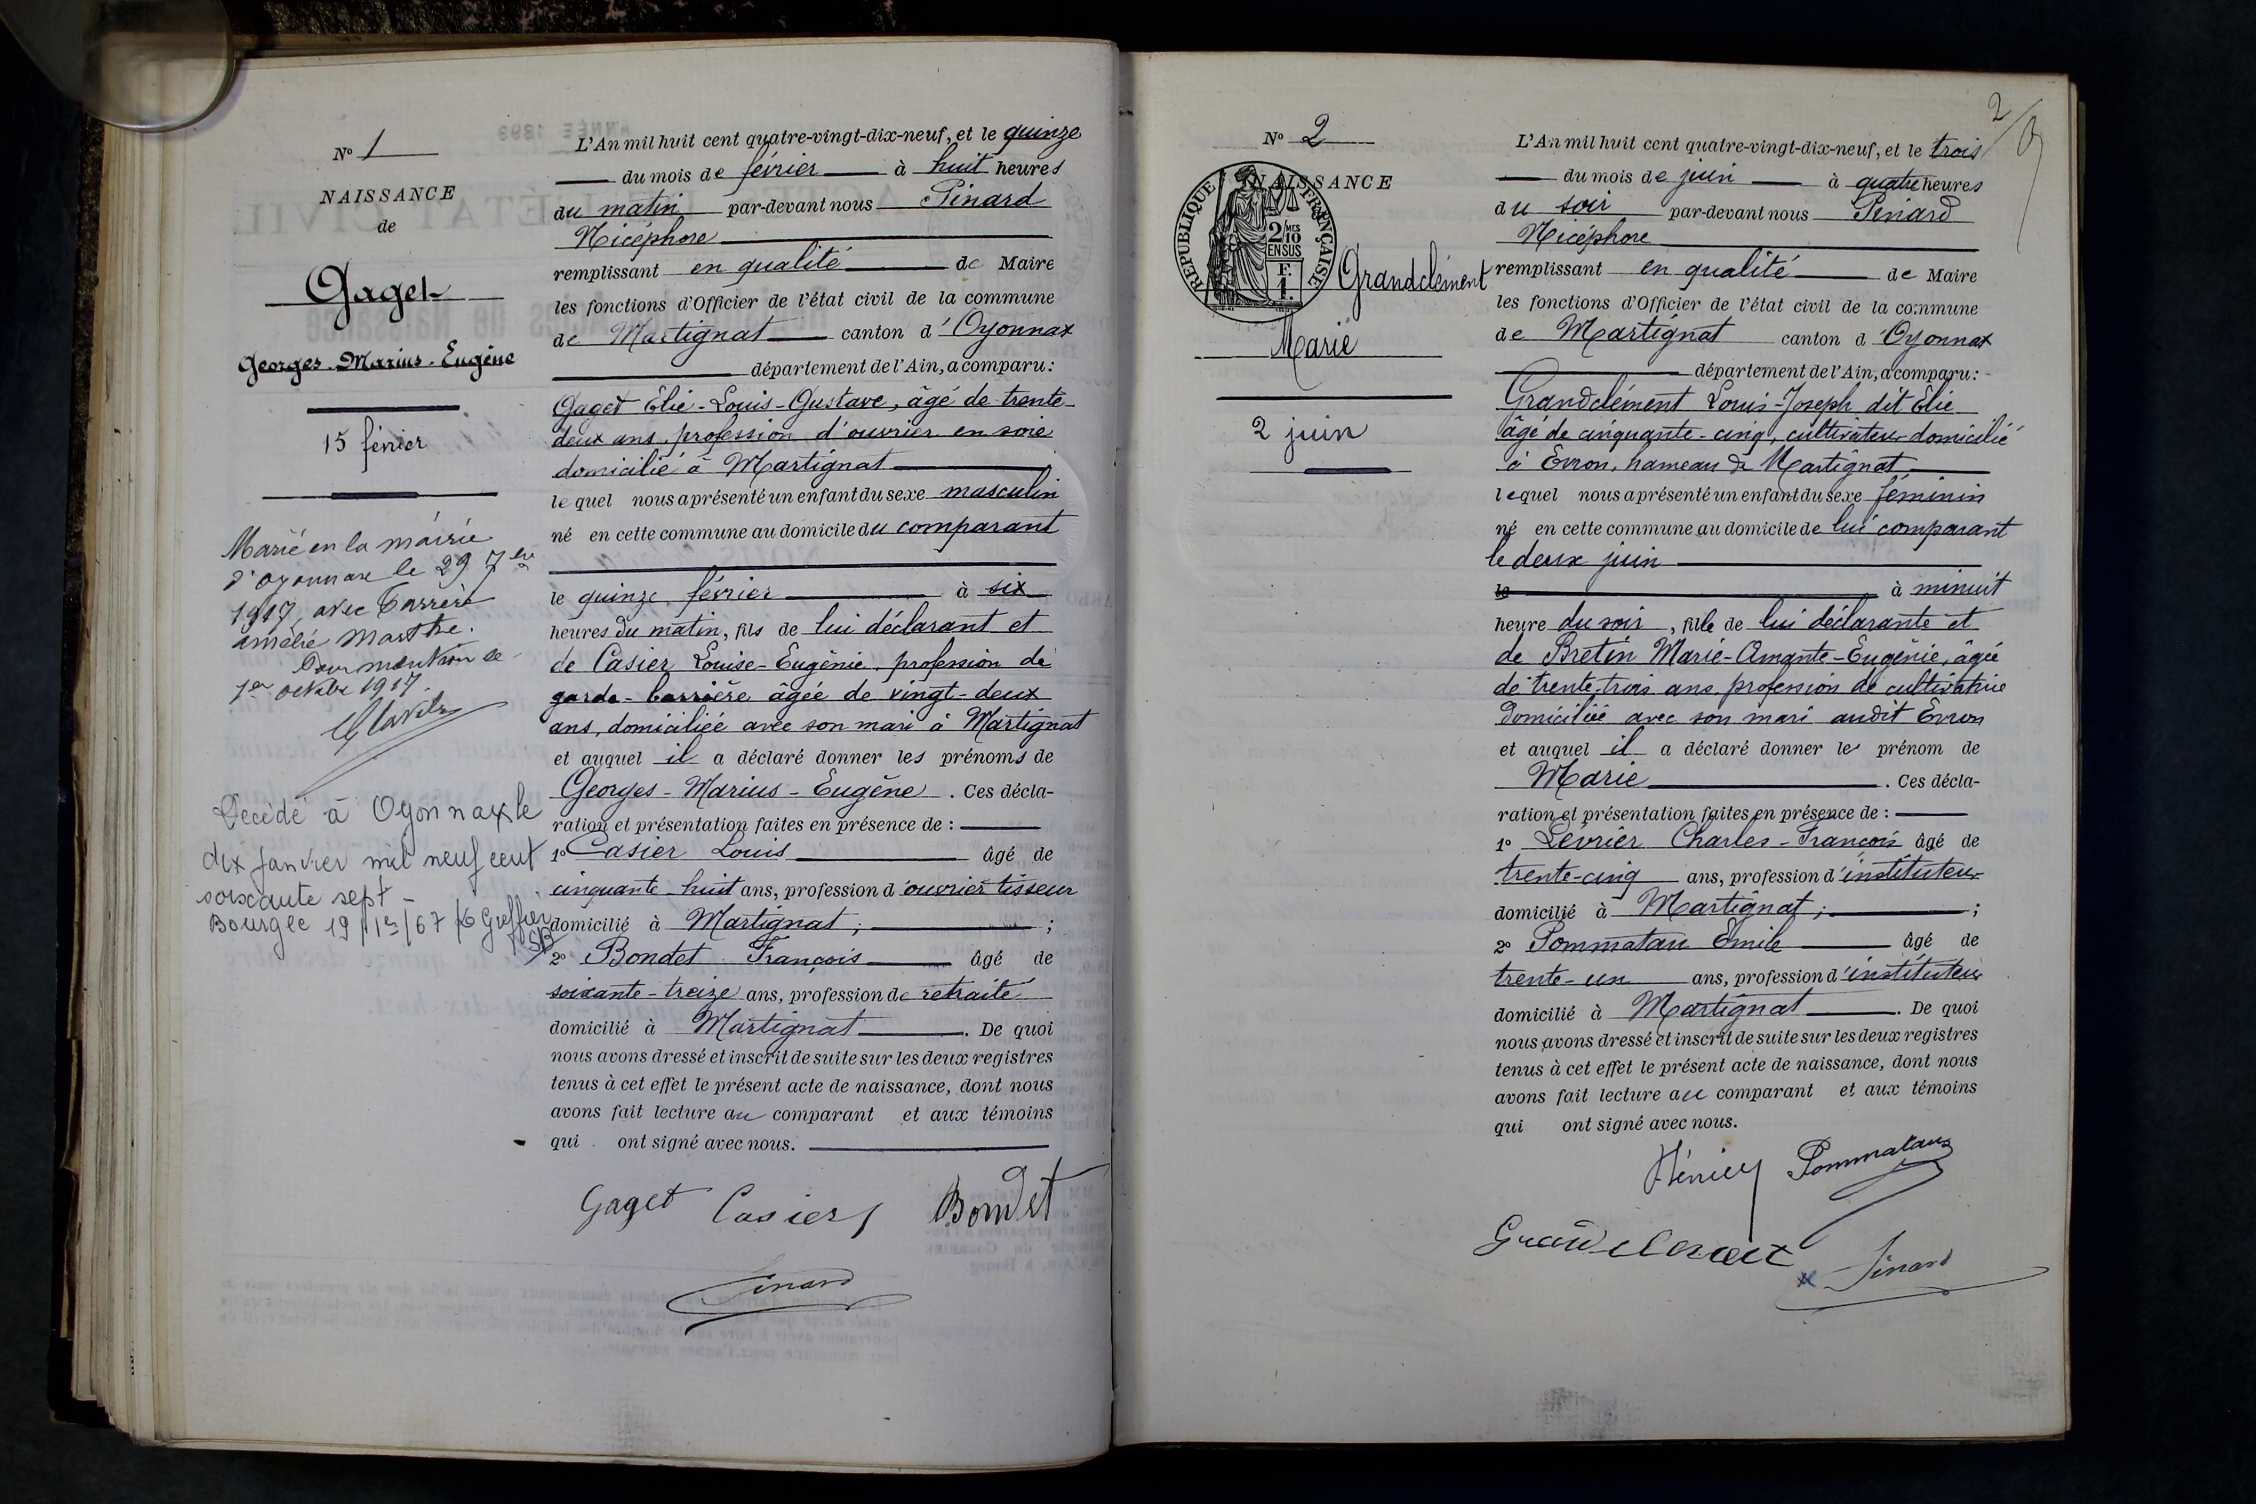 N° 1
NAISSANCE
de
Gaget
Georges-Marius-Eugène
15 février
Marié en la mairie
d'Oyonnax le 29 7bre
1917, avec
amélie Marthe.
Pour mention le
1er octobre 1917.
Décédé à Oyonnax le
dix janvier mil neuf cent
soixante sept -
Bourg le 19/1er/67 Greffier
L'An mil huit cent quatre-vingt-dix-neuf, et le quinze
du mois de février à huit heures
du matin par-devant nous Pinard
Nicéphore
remplissant en qualité de Maire
les fonctions d'Officier de l'état civil de la commune
de Martignat canton d'Oyonnax
département de l'Ain, a comparu:
Gaget Elie-Louis-Gustave, âgé de trente-
deux ans, profession d'ouvrier en soie
domicilié à Martignat
lequel nous a présenté un enfant du sexe masculin
né en cette commune au domicile du comparant
le quinze février à six
heures du matin, fils de lui déclarant et
de Casier Louise-Eugénie, profession de
garde-barrière âgée de vingt-deux
ans, domiciliée avec son mari à Martignat
et auquel il a déclaré donner les prénoms de
Georges-Marius-Eugène. Ces décla-
ration et présentation faites en présence de :
1° Casier Louis âgé de
cinquante-huit ans, profession d'ouvrier tisseur
domicilié à Martignat, ;
2° Bondet François âgé de
soixante-treize ans, profession de retraité
domicilié à Martignat. De quoi
nous avons dressé et inscrit de suite sur les deux registres
tenus à cet effet le présent acte de naissance, dont nous
avons fait lecture au comparant et aux témoins
qui ont signé avec nous.
Gaget Casier Bondet
Pinard
2
N° 2
NAISSANCE
RÉPUBLIQUE FRANÇAISE
2/10 MES
EN SUS
F.
1.
Grandclément
Marie
2 juin
L'An mil huit cent quatre-vingt-dix-neuf, et le trois
du mois de juin à quatre heures
du soir par-devant nous Pinard
Nicéphore
remplissant en qualité de Maire
les fonctions d'Officier de l'état civil de la commune
de Martignat canton d'Oyonnax
département de l'Ain, a comparu:
Grandclément Louis-Joseph dit Elie
âgé de cinquante-cinq, cultivateur domicilié
à Evron, hameau de Martignat
lequel nous a présenté un enfant du sexe féminin
né en cette commune au domicile de lui comparant
le deux juin
le à minuit
heure du soir, fille de lui déclarante et
de Bretin Marie-Amante-Eugénie, âgée
de trente-trois ans, profession de cultivatrice
domiciliée avec son mari audit Evron
et auquel il a déclaré donner le prénom de
Marie. Ces décla-
ration et présentation faites en présence de :
1° Lévrier Charles-François âgé de
trente-cinq ans, profession d'instituteur
domicilié à Martignat, ;
2° Pommatau Emile âgé de
trente-un ans, profession d'instituteur
domicilié à Martignat. De quoi
nous avons dressé et inscrit de suite sur les deux registres
tenus à cet effet le présent acte de naissance, dont nous
avons fait lecture au comparant et aux témoins
qui ont signé avec nous.
Pommatau
Grandclément
Pinard